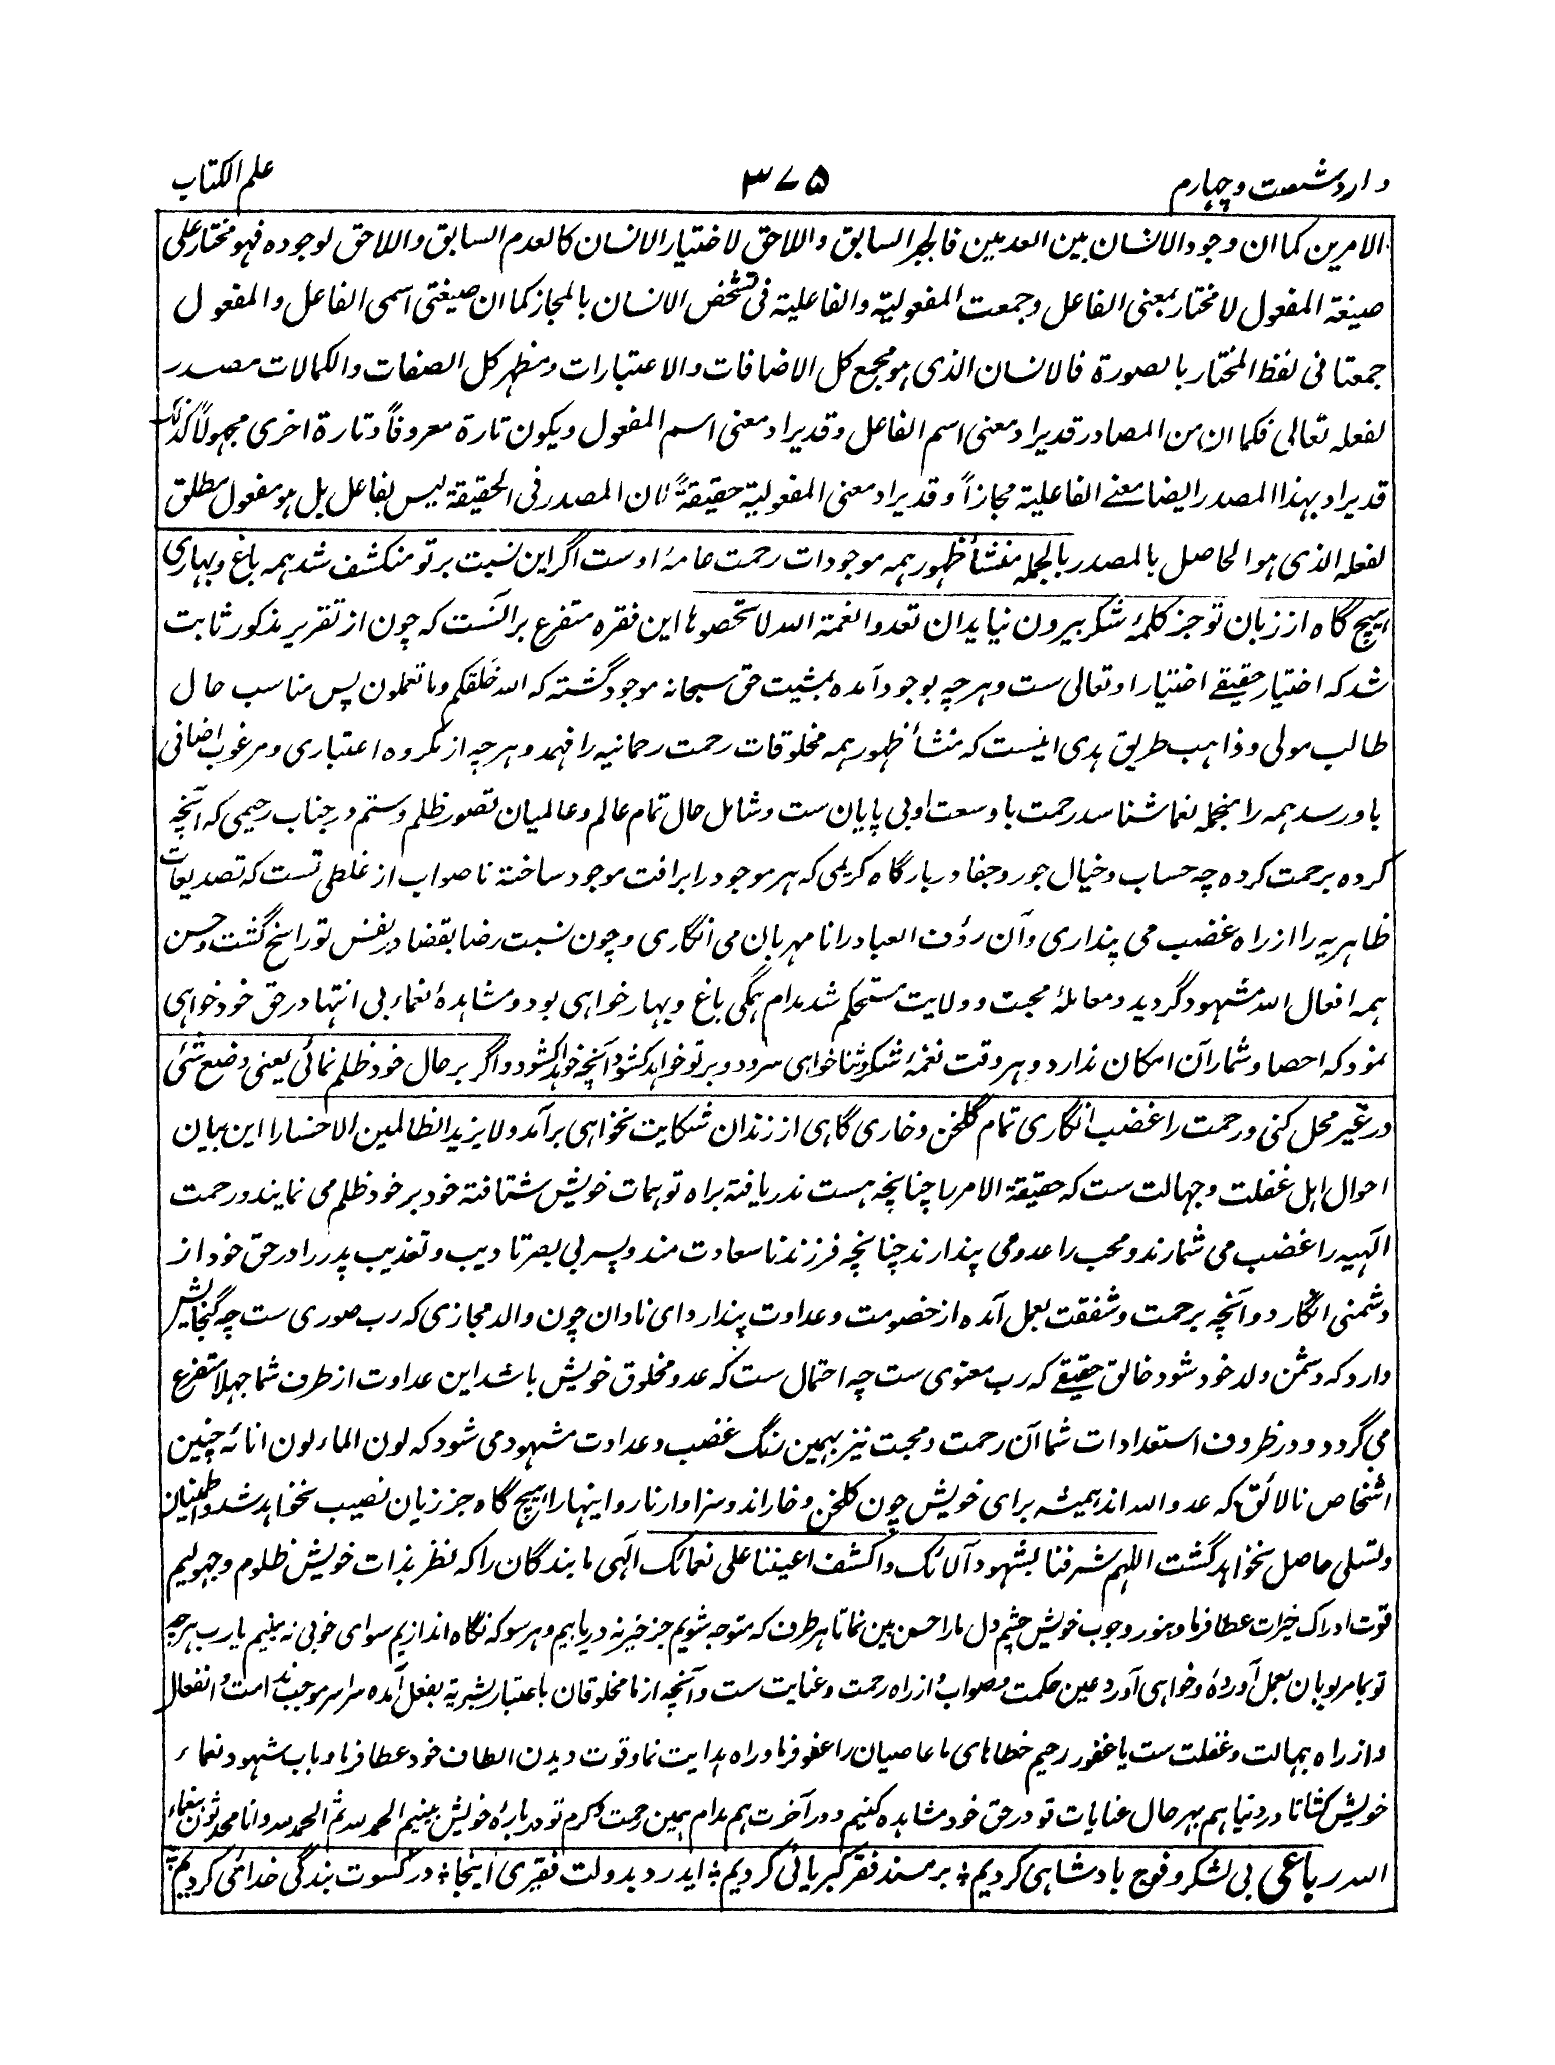 وارد شصت و چهارم
۳۷۵
علم الکتاب
الامرین کما ان وجود الانسان بین العدمین فالجبر السابق واللاحق لاختیار الانسان کالعدم السابق واللاحق لوجوده فهو مختار علی
صیغة المفعول لا مختار بمعنی الفاعل وجمعت المفعولیة والفاعلیة فی تشخص الانسان بالمجاز کما ان صیغتی اسمی الفاعل والمفعول
جمعتا فی لفظ المختار بالصورة فالانسان الذی هو مجمع کل الاضافات والاعتبارات ومظهر کل الصفات والکمالات مصدر
لفعله تعالی فکما ان من المصادر قد یراد معنی اسم الفاعل وقد یراد معنی اسم المفعول ویکون تارة معروفاً وتارة اخری مجهولاً کذلک
قد یراد بهذا المصدر ایضا معنے الفاعلیة مجازاً وقد یراد معنی المفعولیة حقیقةً لان المصدر فی الحقیقة لیس بفاعل بل هو مفعول مطلق
لفعله الذی هو الحاصل بالمصدر بالجمله منشأ ظهور همه موجودات رحمت عامهٔ اوست اگر این نسبت بر تو منکشف شد همه باغ و بهاری
هیچ گاه از زبان تو جز کلمهٔ شکر بیرون نیاید ان تعدوا نعمة الله لا تحصوها این فقره متفرع بر آنست که چون از تقریر مذکور ثابت
شد که اختیار حقیقے اختیار او تعالی ست و هر چه بوجود آمده بمشیت حق سبحانه موجود گشته که الله خلقکم وما تعملون پس مناسب حال
طالب مولی و ذاهب طریق هدی اینست که منشأ ظهور همه مخلوقات رحمت رحمانیه را فهمد و هر چه از مکروه اعتباری و مرغوب اضافی
باو رسد همه را منجمله نعما شناسد رحمت با وسعت او بی پایان ست و شامل حال تمام عالم و عالمیان تصور ظلم و ستم در جناب رحیمی که آنچه
کرده برحمت کرده چه حساب و خیال جور و جفا در بارگاه کریمی که هر موجود را برافت موجود ساخته ناصواب از غلطی تست که تصدیعات
ظاهریه را از راه غضب می پنداری و آن رؤف العباد را نامهربان می انگاری و چون نسبت رضا بقضا در نفس تو راسخ گشت و حسن
همه افعال الله مشهود گردید و معاملهٔ محبت و ولایت مستحکم شد مدام همگی باغ و بهار خواهی بود و مشاهدهٔ نعماء بی انتها در حق خود خواهی
نمود که احصا و شمار آن امکان ندارد و هر وقت نغمهٔ شکر و ثنا خواهی سرود و بر تو خواهد کشود آنچه خواهد کشود و اگر بر حال خود ظلم نمائی یعنی وضع شئی
در غیر محل کنی و رحمت را غضب انگاری تمام گلخن و خاری گاهی از زندان شکایت نخواهی برآمد ولا یزید الظالمین الا خسارا این بیان
احوال اهل غفلت و جهالت ست که حقیقة الامر را چنانچه هست ندریافته براه توهمات خویش شتافته خود بر خود ظلم می نمایند و رحمت
الهیه را غضب می شمارند و محب را عدو می پندارند چنانچه فرزند ناسعادت مند و پسر بی بصر تادیب و تعذیب پدر را در حق خود از
دشمنی انگارد و آنچه برحمت و شفقت بعمل آمده از خصومت و عداوت پندارد ای نادان چون والد مجازی که رب صوری ست چه گنجایش
دارد که دشمن ولد خود شود خالق حقیقے که رب معنوی ست چه احتمال ست که عدو مخلوق خویش باشد این عداوت از طرف شما جهلا متفرع
می گردد و در ظروف استعدادات شما آن رحمت و محبت نیز بهمین رنگ غضب و عداوت مشهود می شود که لون الماء لون انائه چنین
اشخاص نالائق که عدو الله اند همیشه برای خویش چون گلخن و خار اند و سزاوار نار و اینها را هیچ گاه جز زیان نصیب نخواهد شد و اطمینان
و تسلی حاصل نخواهد گشت اللهم شرفنا بشهود آلائک واکشف اعیننا علی نعمائک الٰهی ما بندگان را که نظر بذات خویش ظلوم و جهولیم
قوت ادراک خیرات عطا فرما و بنور وجوب خویش چشم دل ما را حسن بین نما تا هر طرف که متوجه شویم جز خیر نه دریابیم و هر سو که نگاه اندازیم سوای خوبی نه بینیم یا رب هر چه
تو بما مربوبان بعمل آوردهٔ و خواهی آورد عین حکمت و صواب و از راه رحمت و عنایت ست و آنچه از ما مخلوقان باعتبار بشریة بفعل آمده سراسر موجب ندامت و انفعال
و از راه جهالت و غفلت ست یا غفور رحیم خطاهای ما عاصیان را عفو فرما و راه هدایت نما و قوت دیدن الطاف خود عطا فرما و باب شهود نعماء
خویش کشا تا در دنیا هم بهر حال عنایات تو در حق خود مشاهده کنیم و در آخرت هم مدام همین رحمت و کرم تو دربارهٔ خویش بینیم الحمد لله ثم الحمد لله وانا محدثون بنعماء
الله رباعی بی لشکر و فوج بادشاهی کردیم ؛ بر مسند فقر کبریائی کردیم ؛ ای درد بدولت فقیری اینجا ؛ در کسوت بندگی خدائی کردیم ؛